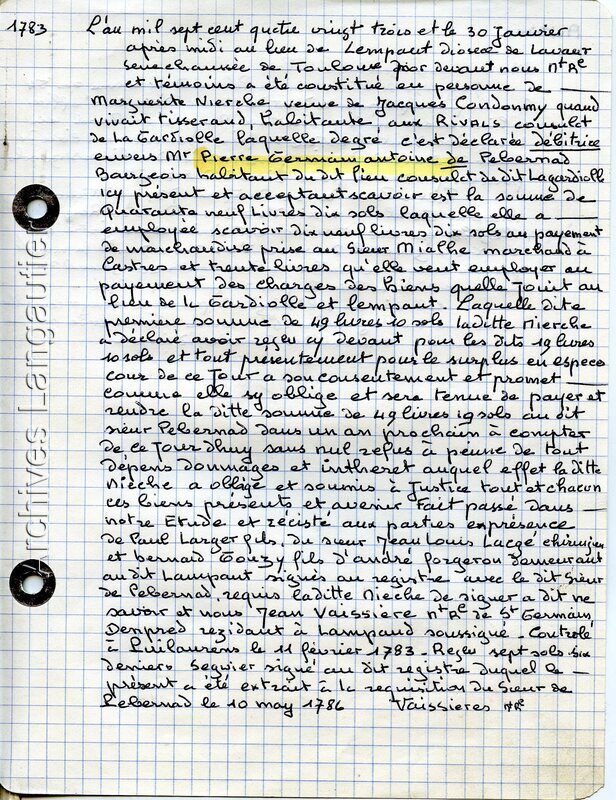 1783 L'au mil sept cent quatre vingt trois et le 30 Janvier
après midi au lieu de Lempaut diocèse de Lavaur
senechaussée de Toulouse par devant nous Ntre
et témoins a été constitué en personne de
Marguerite Nierche veuve de Jacques Condommy quand
vivait tisserand, habitante aux RIVALS consulat
de La Gardiolle laquelle degré c'est déclarée débitrice
envers Mr Pierre Germain antoine de Pebernad
Bourgeois habitant du dit lieu consulat du dit Lagardiolle
icy présent et acceptant scavoir est la somme de
Quarante neuf Livres dix sols laquelle elle a
employée scavoir dix neuf livres dix sols au payement
de marchandise prise au Sieur Mialhe marchand à
Castres et trente livres qu'elle veut employer au
payement des charges des biens quelle Jouit au
lieu de la Gardiolle et lempaut. Laquelle dite
première somme de 49 livres 10 sols laditte Nierche
a déclaré avoir reçeu cy devant pour les dits 19 livres
10 sols et tout présentement pour le surplus en espèces
cour de ce Jour a son consentement et promet
comme elle sy oblige et sera tenue de payer et
rendre la ditte somme de 49 livres 10 sols au dit
sieur Pebernad dans un an prochain à compter
de ce Jourdhuy sans nul refus à peune de tout
Dépens dommages et intheret auquel effet la ditte
Nieche a obligé et soumis à Justice tout et chacun
ces biens présents et avenir Fait passé dans
notre Etude et récisté aux parties en présence
de Paul Larger fils, du sœur Jean Louis Lacgé chirurgien
et bernad Gouzy fils d'andré forgeron demeurant
au dit Lampaut signés au registre avec le dit Sieur
de Pebernad, requis laditte Nieche de signer a dit ne
savoir et nous Jean Vaissière Ntre de St Germain
Denpred rezidant à Lampaud soussigné - Controlé
à Puilaurens le 11 février 1783 - Reçeu sept sols six
deniers Seguier signé au dit registre duquel le
présent a été extrait à la requisition du Sieur de
Pebernad le 10 may 1786 Vaissieres Ntre
Archives Langautier